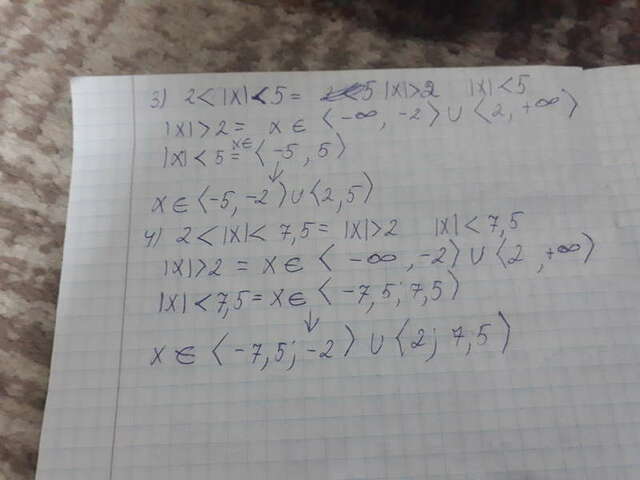 3) 2 < |x| < 5 = |x| > 2 |x| < 5
|x| > 2 = x ∈ ⟨ -∞, -2 ⟩ ∪ ⟨ 2, +∞ ⟩
|x| < 5 = x ∈ ⟨ -5, 5 ⟩
↓
x ∈ ⟨ -5, -2 ⟩ ∪ ⟨ 2, 5 ⟩
4) 2 < |x| < 7,5 = |x| > 2 |x| < 7,5
|x| > 2 = x ∈ ⟨ -∞, -2 ⟩ ∪ ⟨ 2, +∞ ⟩
|x| < 7,5 = x ∈ ⟨ -7,5; 7,5 ⟩
↓
x ∈ ⟨ -7,5; -2 ⟩ ∪ ⟨ 2; 7,5 ⟩